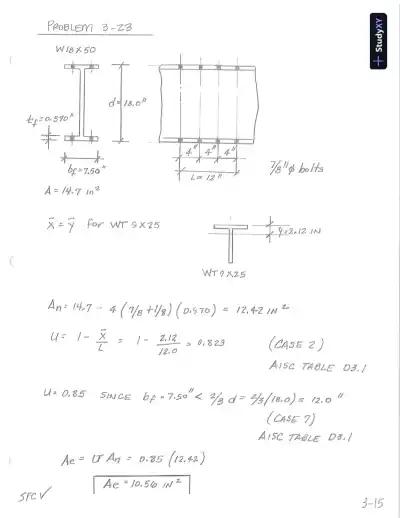 PROBLEM 3-23
W18X50
StudyXY
d=18.0"
tf=0.570"
4" 4" 4"
bf=7.50"
L=12"
7/8"φ bolts
A=14.7 in²
x̄ = ȳ for WT 9X25
ȳ=2.12 IN
WT9X25
An = 14.7 - 4 (7/8 + 1/8)(0.570) = 12.42 IN²
U = 1 - x̄/L = 1 - 2.12/12.0 = 0.823 (CASE 2)
AISC TABLE D3.1
U = 0.85 SINCE bf = 7.50" < 2/3 d = 2/3(18.0) = 12.0"
(CASE 7)
AISC TABLE D3.1
Ae = U An = 0.85 (12.42)
Ae = 10.56 IN²
SFC√
3-15